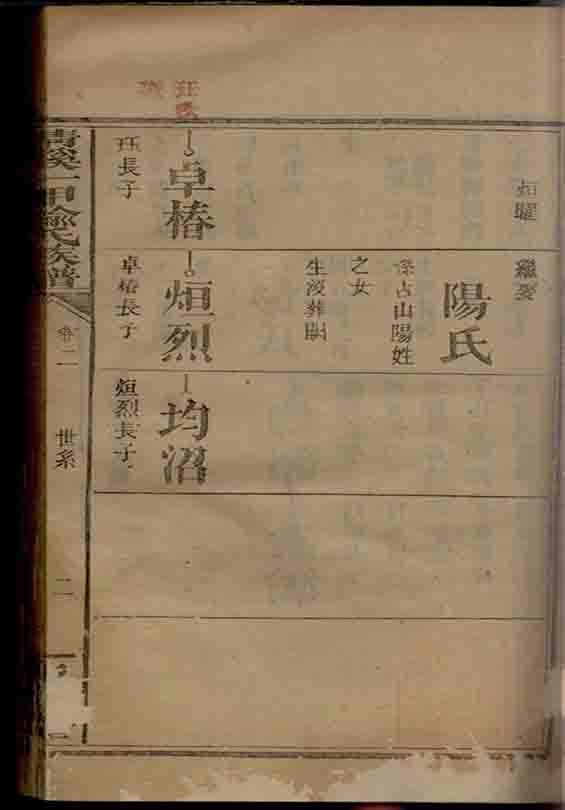 烜曜
繼娶
陽氏
係占山陽姓
之女
生歿葬闕
卓椿
長子
烜烈
卓椿長子
均沼
烜烈長子
清溪一甲氏族譜
卷二
世系
二